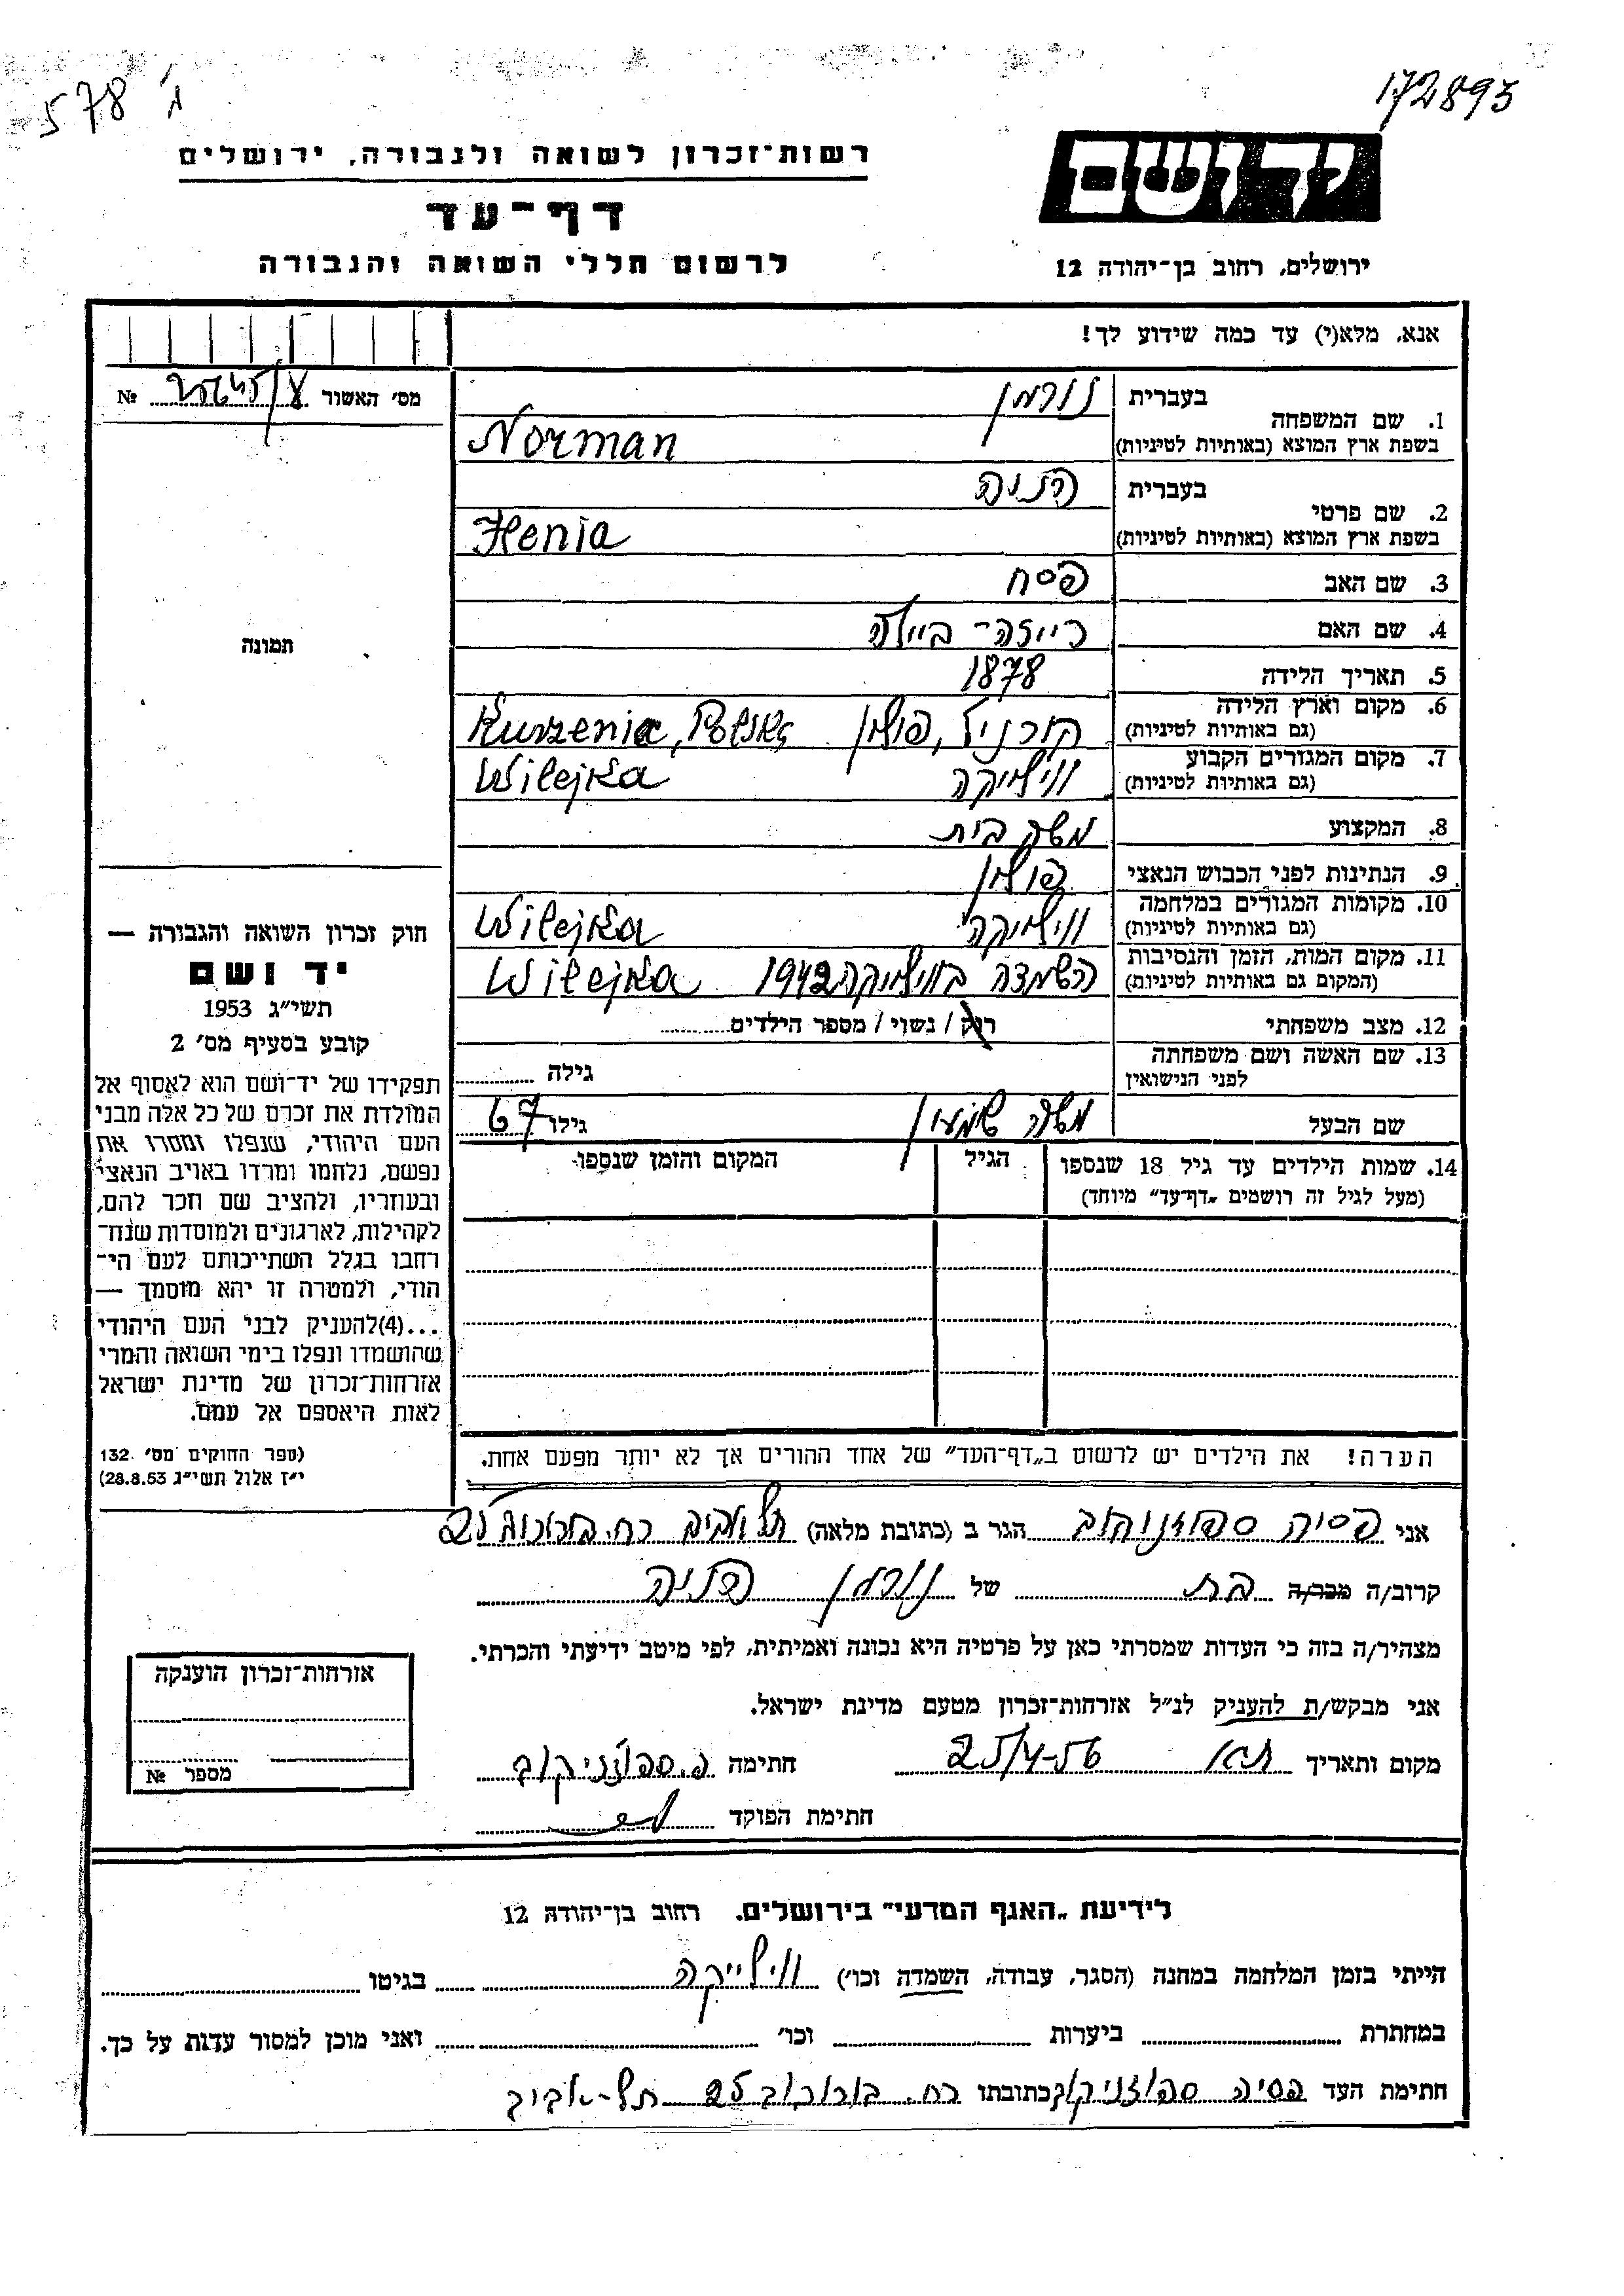 ג' 578
172893
יד ושם
רשות־זכרון לשואה ולגבורה, ירושלים
דף־עד
לרשום חללי השואה והגבורה
ירושלים, רחוב בן־יהודה 12
אנא, מלא(י) עד כמה שידוע לך!
מס' האשור № 
1. שם המשפחה בעברית נורמן
בשפת ארץ המוצא (באותיות לטיניות) Norman
2. שם פרטי בעברית הניה
בשפת ארץ המוצא (באותיות לטיניות) Henia
3. שם האב פסח
4. שם האם ביילה
5. תאריך הלידה 1878
6. מקום וארץ הלידה (גם באותיות לטיניות) פולין Kurzenia,
7. מקום המגורים הקבוע (גם באותיות לטיניות) ווילייקה Wilejka
8. המקצוע משק בית
9. הנתינות לפני הכבוש הנאצי פולין
10. מקומות המגורים במלחמה (גם באותיות לטיניות) ווילייקה Wilejka
11. מקום המות, הזמן והנסיבות (המקום גם באותיות לטיניות) הושמדה בווילייקה 1942 Wilejka
12. מצב משפחתי רוק / נשוי / מספר הילדים
13. שם האשה ושם משפחתה לפני הנישואין גילה
שם הבעל משה שמעון גילו 67
14. שמות הילדים עד גיל 18 שנספו הגיל המקום והזמן שנספו
(מעל לגיל זה רושמים „דף־עד” מיוחד)
תמונה
חוק זכרון השואה והגבורה —
יד ושם
תשי"ג 1953
קובע בסעיף מס' 2
תפקידו של יד־ושם הוא לאסוף אל
המולדת את זכרם של כל אלה מבני
העם היהודי, שנפלו ומסרו את
נפשם, נלחמו ומרדו באויב הנאצי
ובעוזריו, ולהציב שם וזכר להם,
לקהילות, לארגונים ולמוסדות שנח־
רבו בגלל השתייכותם לעם הי־
הודי, ולמטרה זו יהא מוסמך —
...(4)להעניק לבני העם היהודי
שהושמדו ונפלו בימי השואה והמרי
אזרחות־זכרון של מדינת ישראל
לאות היאספם אל עמם.
(ספר החוקים מס' 132.
י"ז אלול תשי"ג 28.8.53)
הערה! את הילדים יש לרשום ב„דף־העד” של אחד ההורים אך לא יותר מפעם אחת.
אני פסיה ספוזניקוב הגר ב (כתובת מלאה) תל אביב רח. בורוכוב 25
קרוב/ה מכר/ה בת של נורמן הניה
מצהיר/ה בזה כי העדות שמסרתי כאן על פרטיה היא נכונה ואמיתית, לפי מיטב ידיעתי והכרתי.
אני מבקש/ת להעניק לנ"ל אזרחות־זכרון מטעם מדינת ישראל.
מקום ותאריך ת"א 25/4-56 חתימה פ. ספוזניקוב
חתימת הפוקד
אזרחות־זכרון הוענקה
מספר №
לידיעת „האגף המדעי” בירושלים. רחוב בן־יהודה 12
הייתי בזמן המלחמה במחנה (הסגר, עבודה, השמדה וכו') ווילייקה בגיטו
במחתרת ביערות וכו' ואני מוכן למסור עדות על כך.
חתימת העד פסיה ספוזניקוב כתובתו רח. בורוכוב 25 תל-אביב